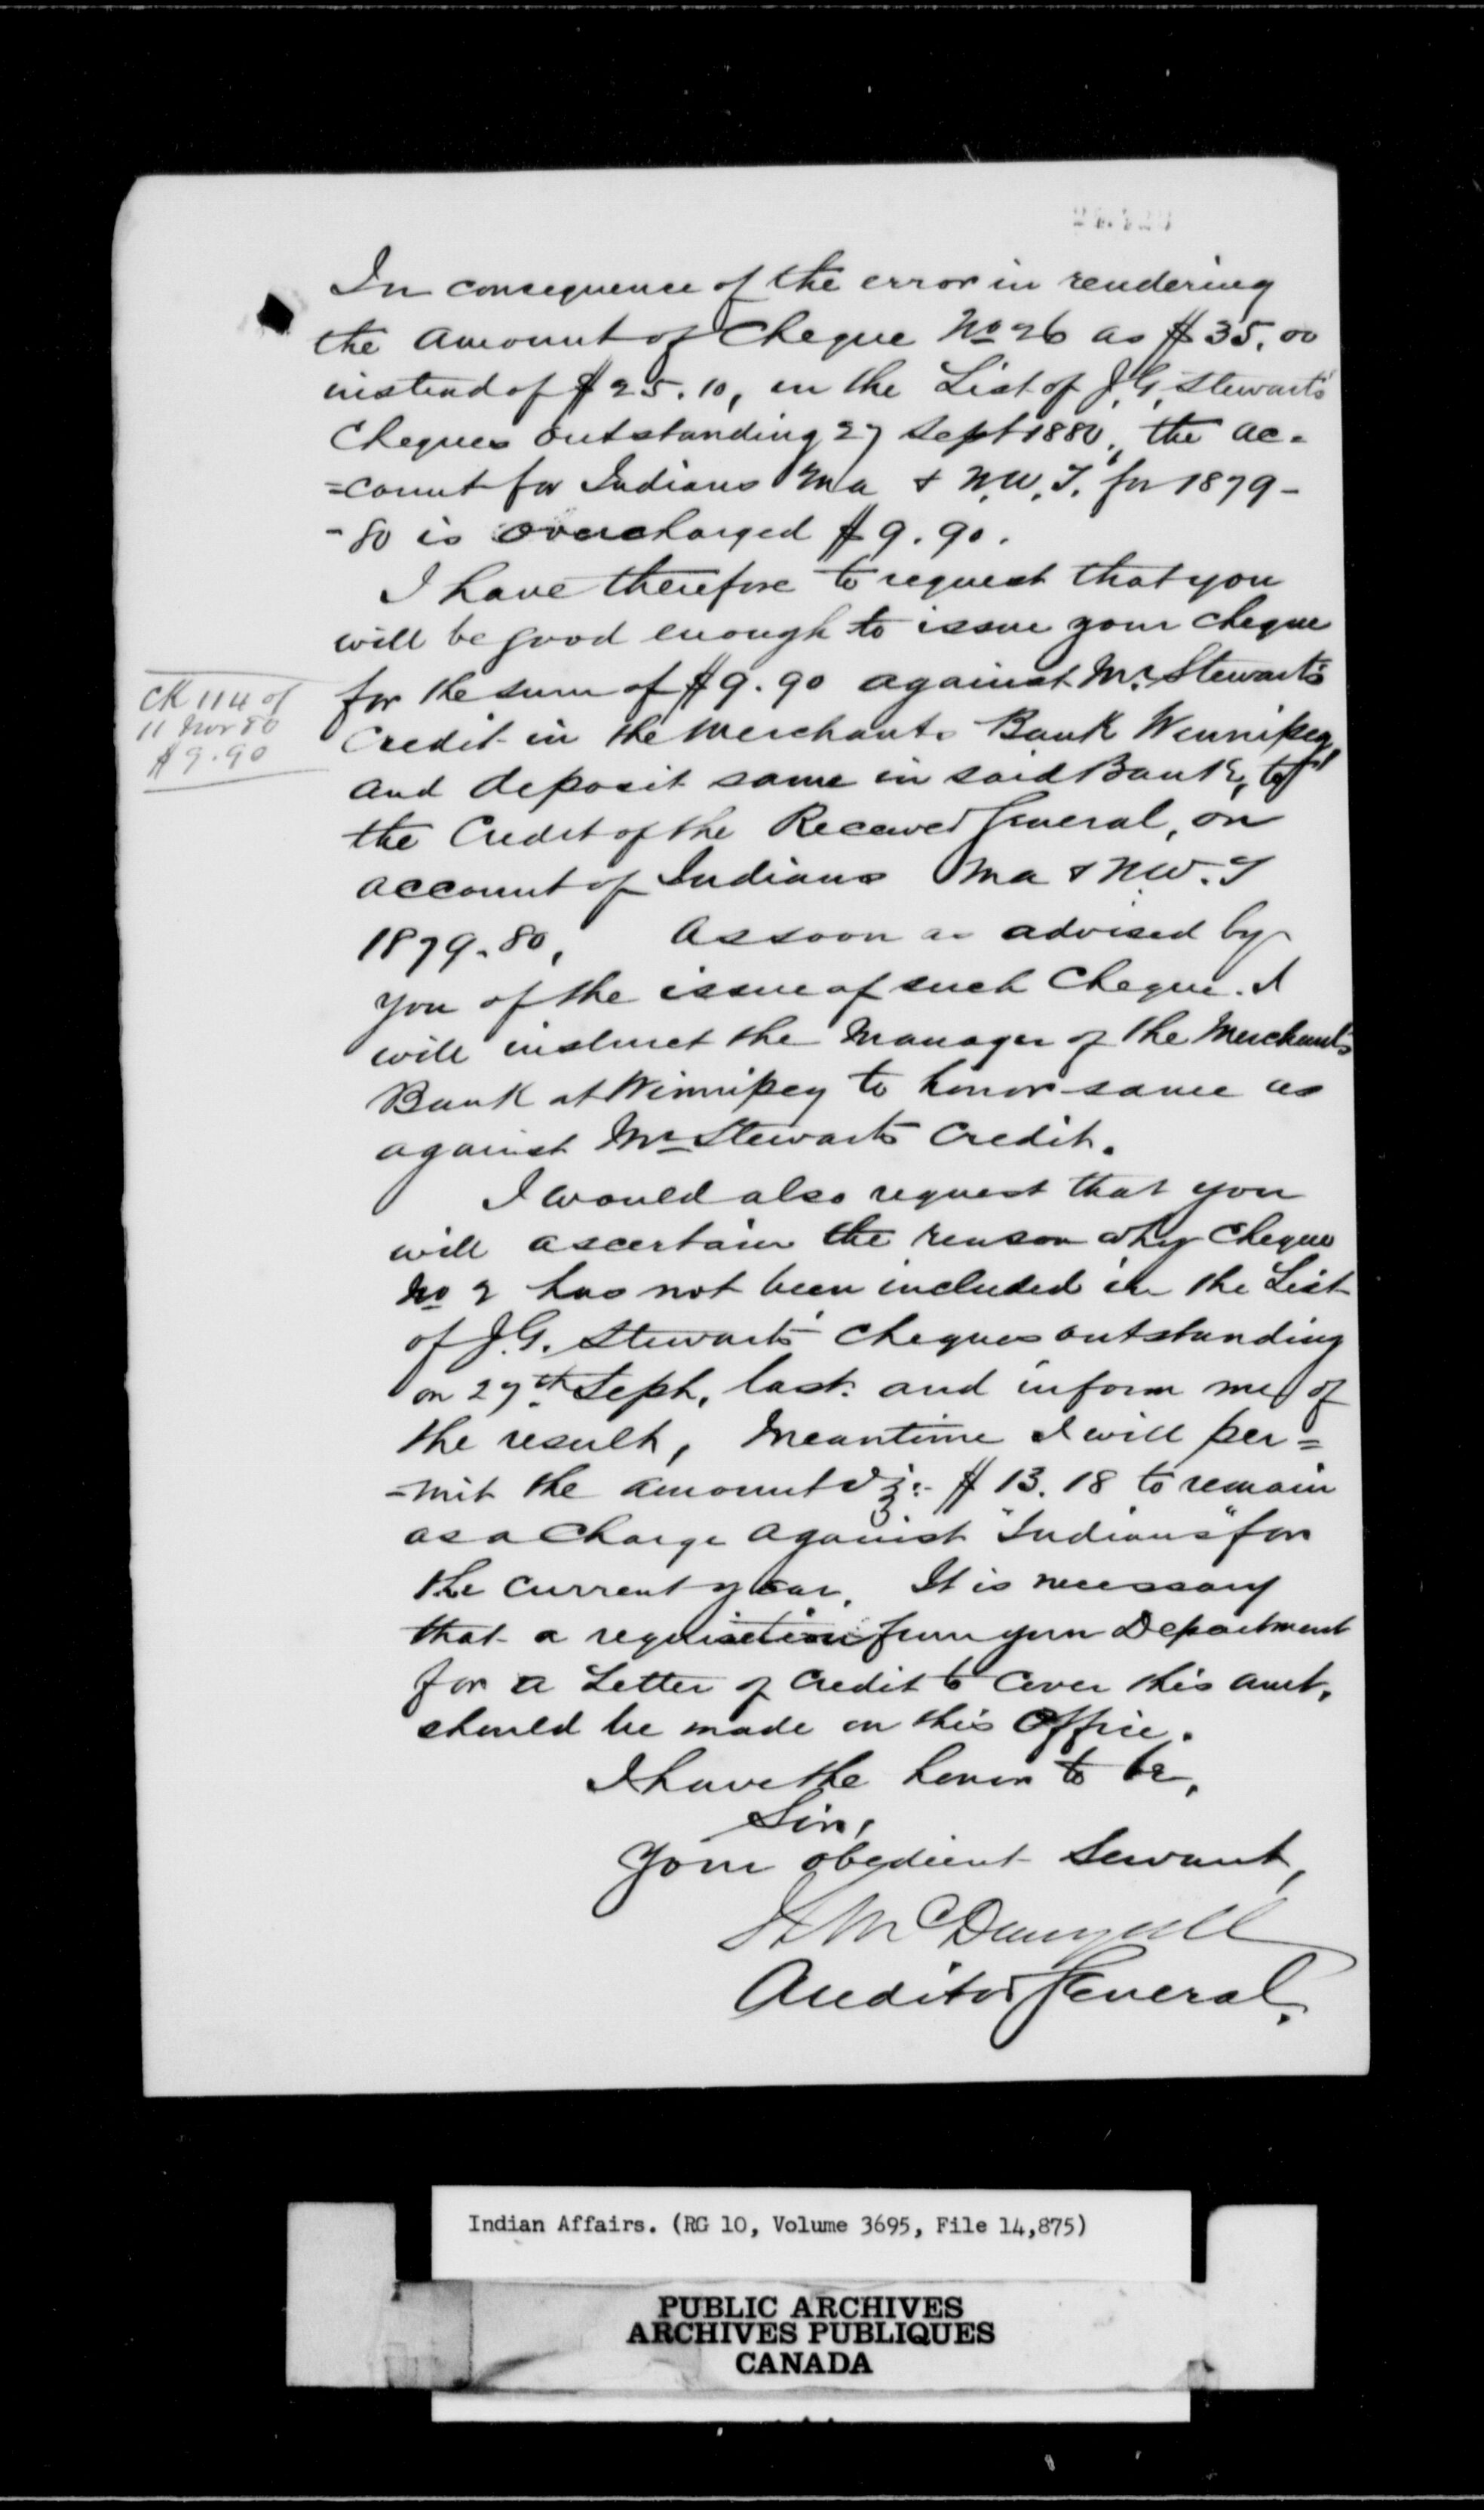 In consequence of the error in rendering
the amount of Cheque No 26 as $35.00
instead of $25.10, in the List of J.G. Stewart's
Cheques outstanding 27 Sept 1880, the ac=
=count for Indians Ma & N.W.T. for 1879-
-80 is overcharged $9.90.
I have therefore to request that you
will be good enough to issue your cheque
for the sum of $9.90 against Mr. Stewart's
Credit in the Merchants Bank Winnipeg,
and deposit same in said Bank, to
the Credit of the Receiver General, on
account of Indians Ma & N.W.T
1879-80, As soon as advised by
you of the issue of such Cheque. I
will instruct the Manager of the Merchants
Bank at Winnipeg to honor same as
against Mr Stewarts Credit.
I would also request that you
will ascertain the reason why Cheque
No 2 has not been included in the List
of J.G. Stewarts' Cheques outstanding
on 27th Sept. last. and inform me of
the result, Meantime I will per=
=mit the amount viz:- $13.18 to remain
as a Charge against "Indians" for
the current year. It is necessary
that a requisition from your Department
for a Letter of Credit to cover this amt.
should be made on this Office.
I have the honor to be,
Sir,
Your obedient Servant,
J McDougall
Auditor General.
CK 114 of
11 Nov 80
$9.90
Indian Affairs. (RG 10, Volume 3695, File 14,875)
PUBLIC ARCHIVES
ARCHIVES PUBLIQUES
CANADA